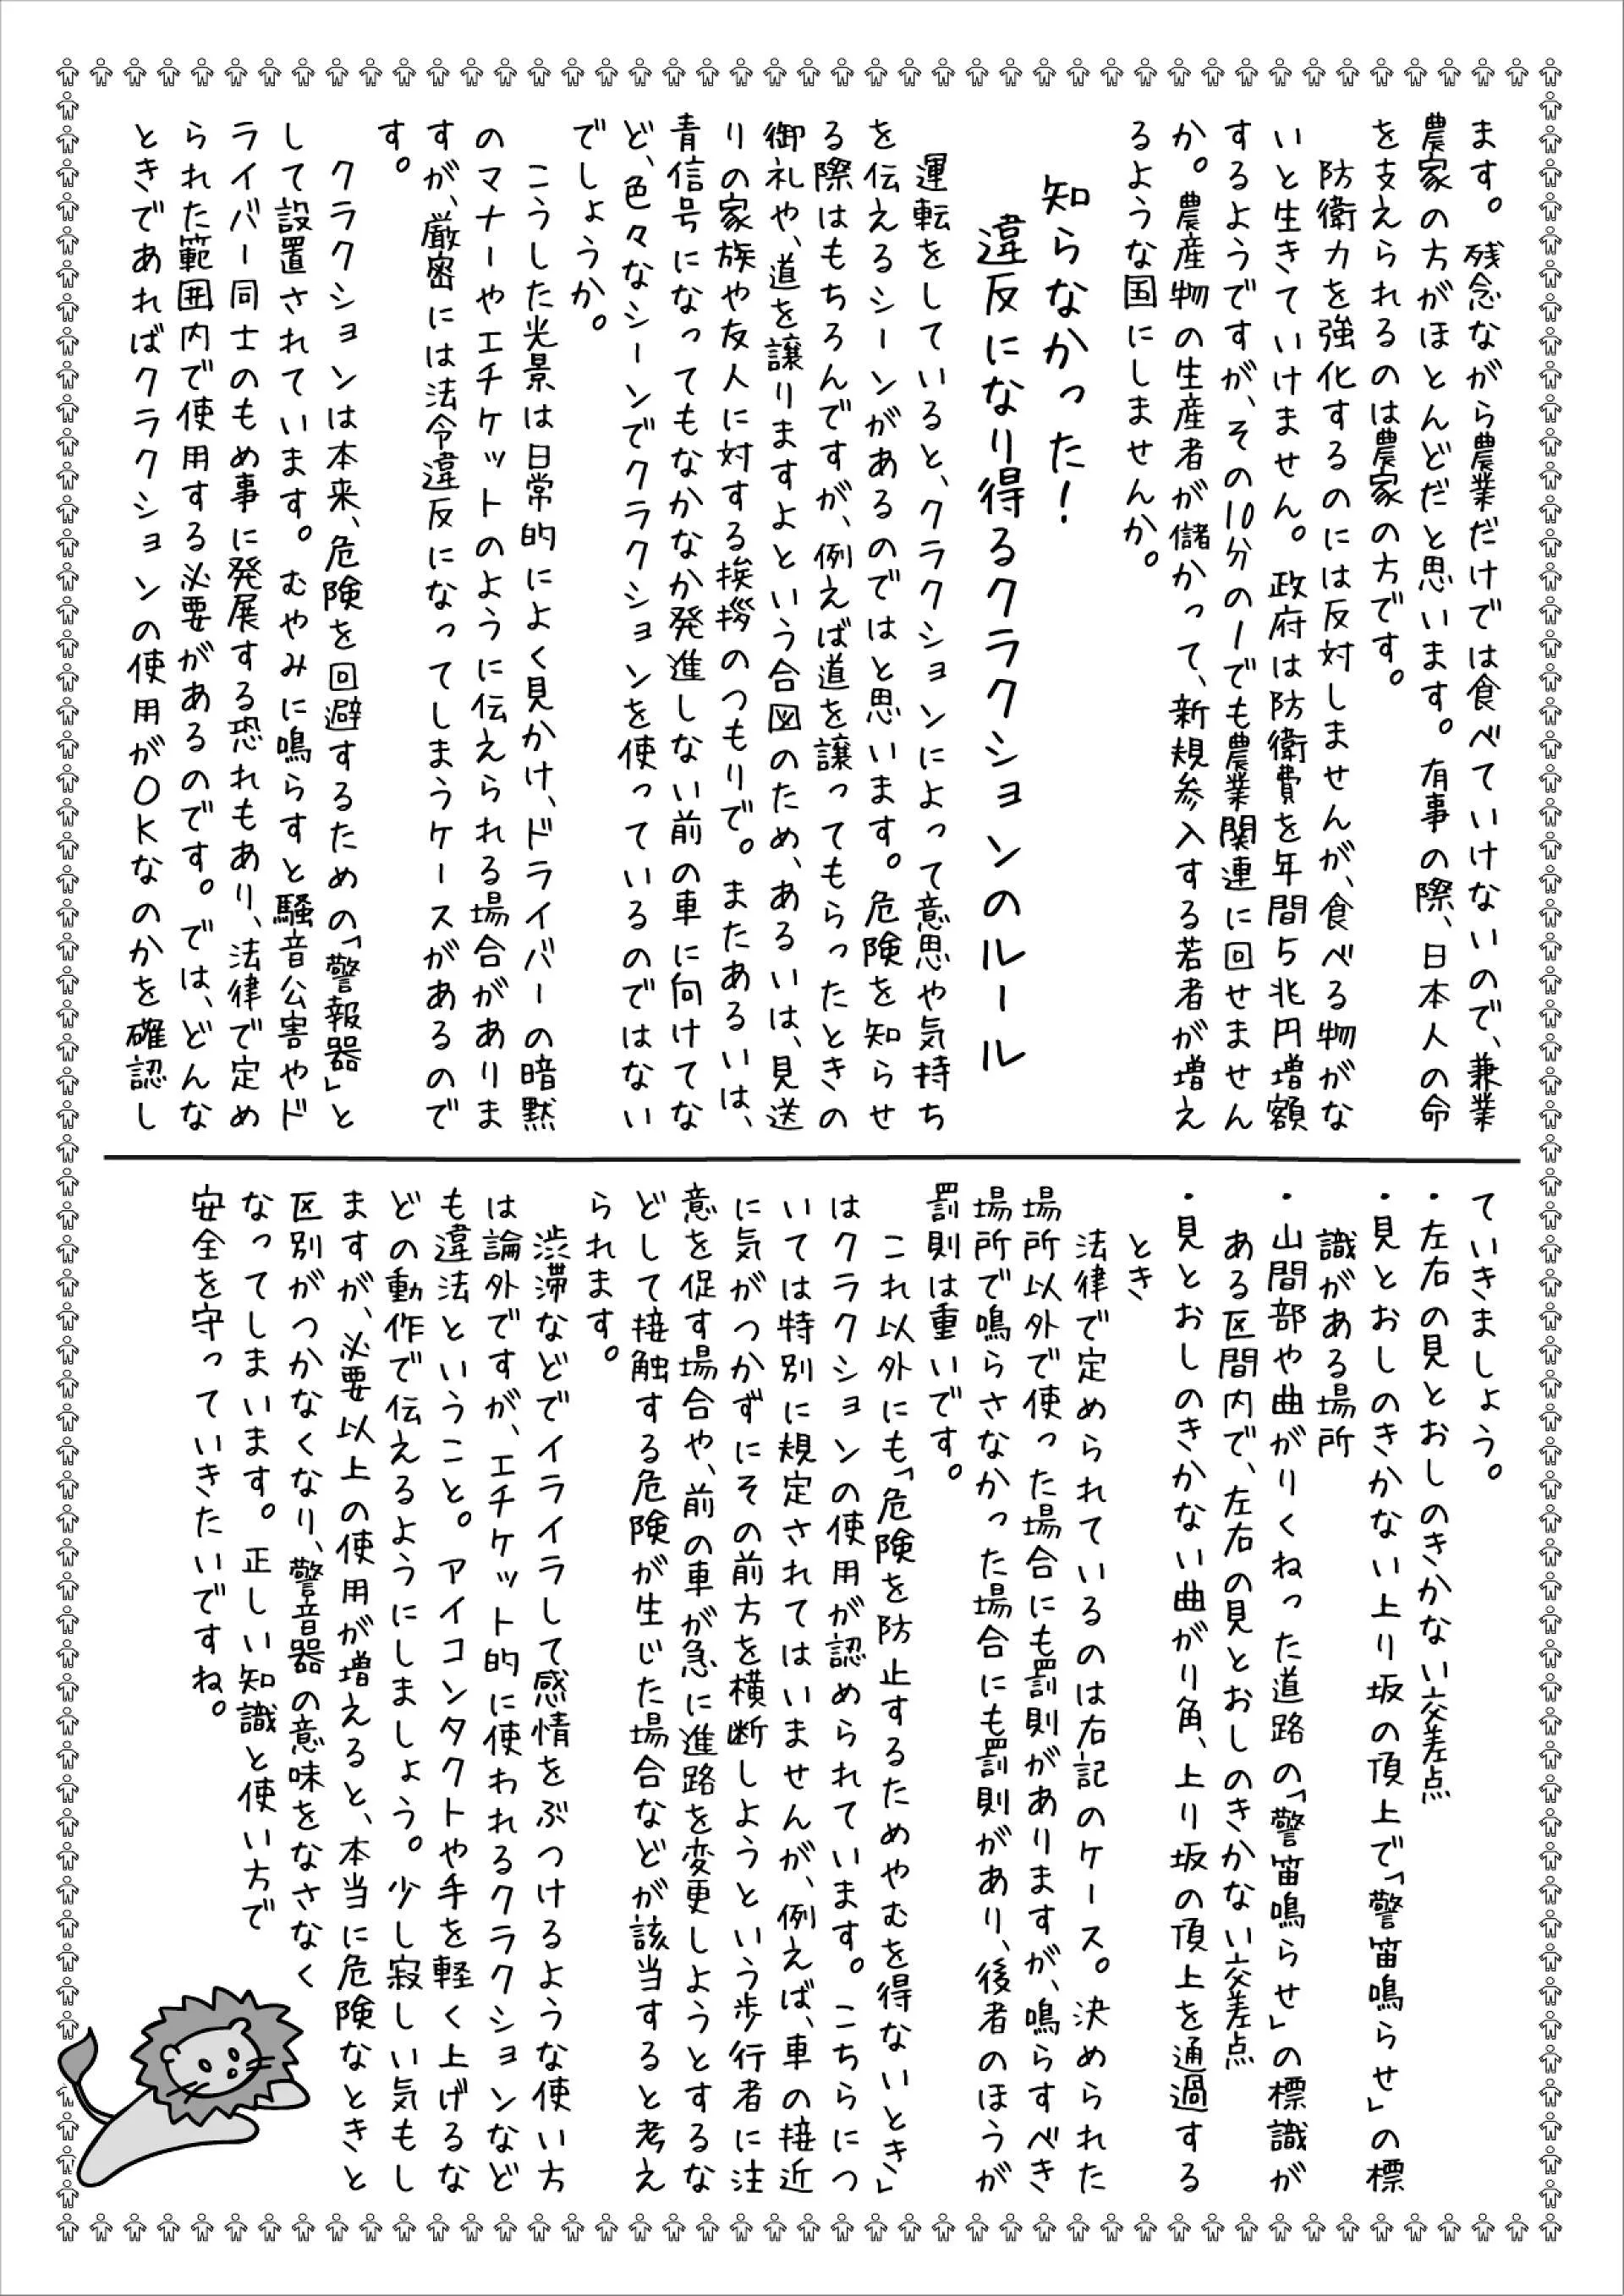 ます。残念ながら農業だけでは食べていけないので、兼業
農家の方がほとんどだと思います。有事の際、日本人の命
を支えられるのは農家の方です。
防衛力を強化するのには反対しませんが、食べる物がな
いと生きていけません。政府は防衛費を年間5兆円増額
するようですが、その10分の1でも農業関連に回せません
か。農産物の生産者が儲かって、新規参入する若者が増え
るような国にしませんか。
知らなかった!
違反になり得るクラクションのルール
運転をしていると、クラクションによって意思や気持ち
を伝えるシーンがあるのではと思います。危険を知らせ
る際はもちろんですが、例えば道を譲ってもらったときの
御礼や、道を譲りますよという合図のため、あるいは、見送
りの家族や友人に対する挨拶のつもりで。またあるいは、
青信号になってもなかなか発進しない前の車に向けてな
ど、色々なシーンでクラクションを使っているのではない
でしょうか。
こうした光景は日常的によく見かけ、ドライバーの暗黙
のマナーやエチケットのように伝えられる場合がありま
すが、厳密には法令違反になってしまうケースがあるので
す。
クラクションは本来、危険を回避するための「警報器」と
して設置されています。むやみに鳴らすと騒音公害やド
ライバー同士のもめ事に発展する恐れもあり、法律で定め
られた範囲内で使用する必要があるのです。では、どんな
ときであればクラクションの使用がOKなのかを確認し
ていきましょう。
・左右の見とおしのきかない交差点
・見とおしのきかない上り坂の頂上で「警笛鳴らせ」の標
識がある場所
・山間部や曲がりくねった道路の「警笛鳴らせ」の標識が
ある区間内で、左右の見とおしのきかない交差点
・見とおしのきかない曲がり角、上り坂の頂上を通過する
とき
法律で定められているのは右記のケース。決められた
場所以外で使った場合にも罰則がありますが、鳴らすべき
場所で鳴らさなかった場合にも罰則があり、後者のほうが
罰則は重いです。
これ以外にも「危険を防止するためやむを得ないとき」
はクラクションの使用が認められています。こちらにつ
いては特別に規定されてはいませんが、例えば、車の接近
に気がつかずにその前方を横断しようという歩行者に注
意を促す場合や、前の車が急に進路を変更しようとするな
どして接触する危険が生じた場合などが該当すると考え
られます。
渋滞などでイライラして感情をぶつけるような使い方
は論外ですが、エチケット的に使われるクラクションなど
も違法ということ。アイコンタクトや手を軽く上げるな
どの動作で伝えるようにしましょう。少し寂しい気もし
ますが、必要以上の使用が増えると、本当に危険なときと
区別がつかなくなり、警音器の意味をなさなく
なってしまいます。正しい知識と使い方で
安全を守っていきたいですね。